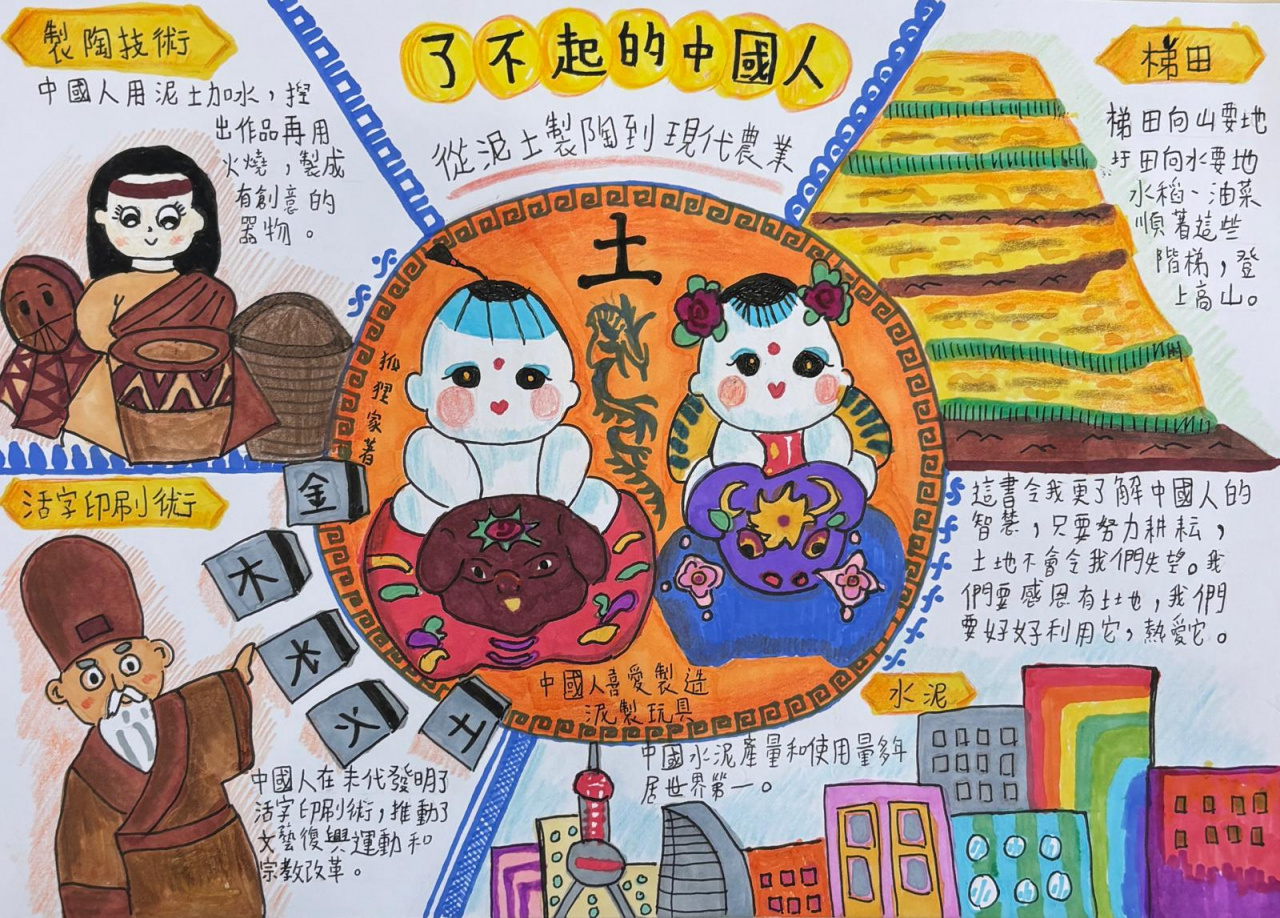 了不起的中國人
從泥土製陶到現代農業
製陶技術
中國人用泥土加水，捏
出作品再用
火燒，製成
有創意的
器物。
梯田
梯田向山要地
圩田向水要地
水稻、油菜
順著這些
階梯，登
上高山。
土
狐狸家著
中國人喜愛製造
泥製玩具
活字印刷術
金
木
水
火
土
中國人在未代發明了
活字印刷術，推動了
文藝復興運動和
宗教改革。
這書令我更了解中國人的
智慧，只要努力耕耘，
土地不會令我們失望。我
們要感恩有土地，我們
要好好利用它，熱愛它。
水泥
中國水泥產量和使用量多年
居世界第一。